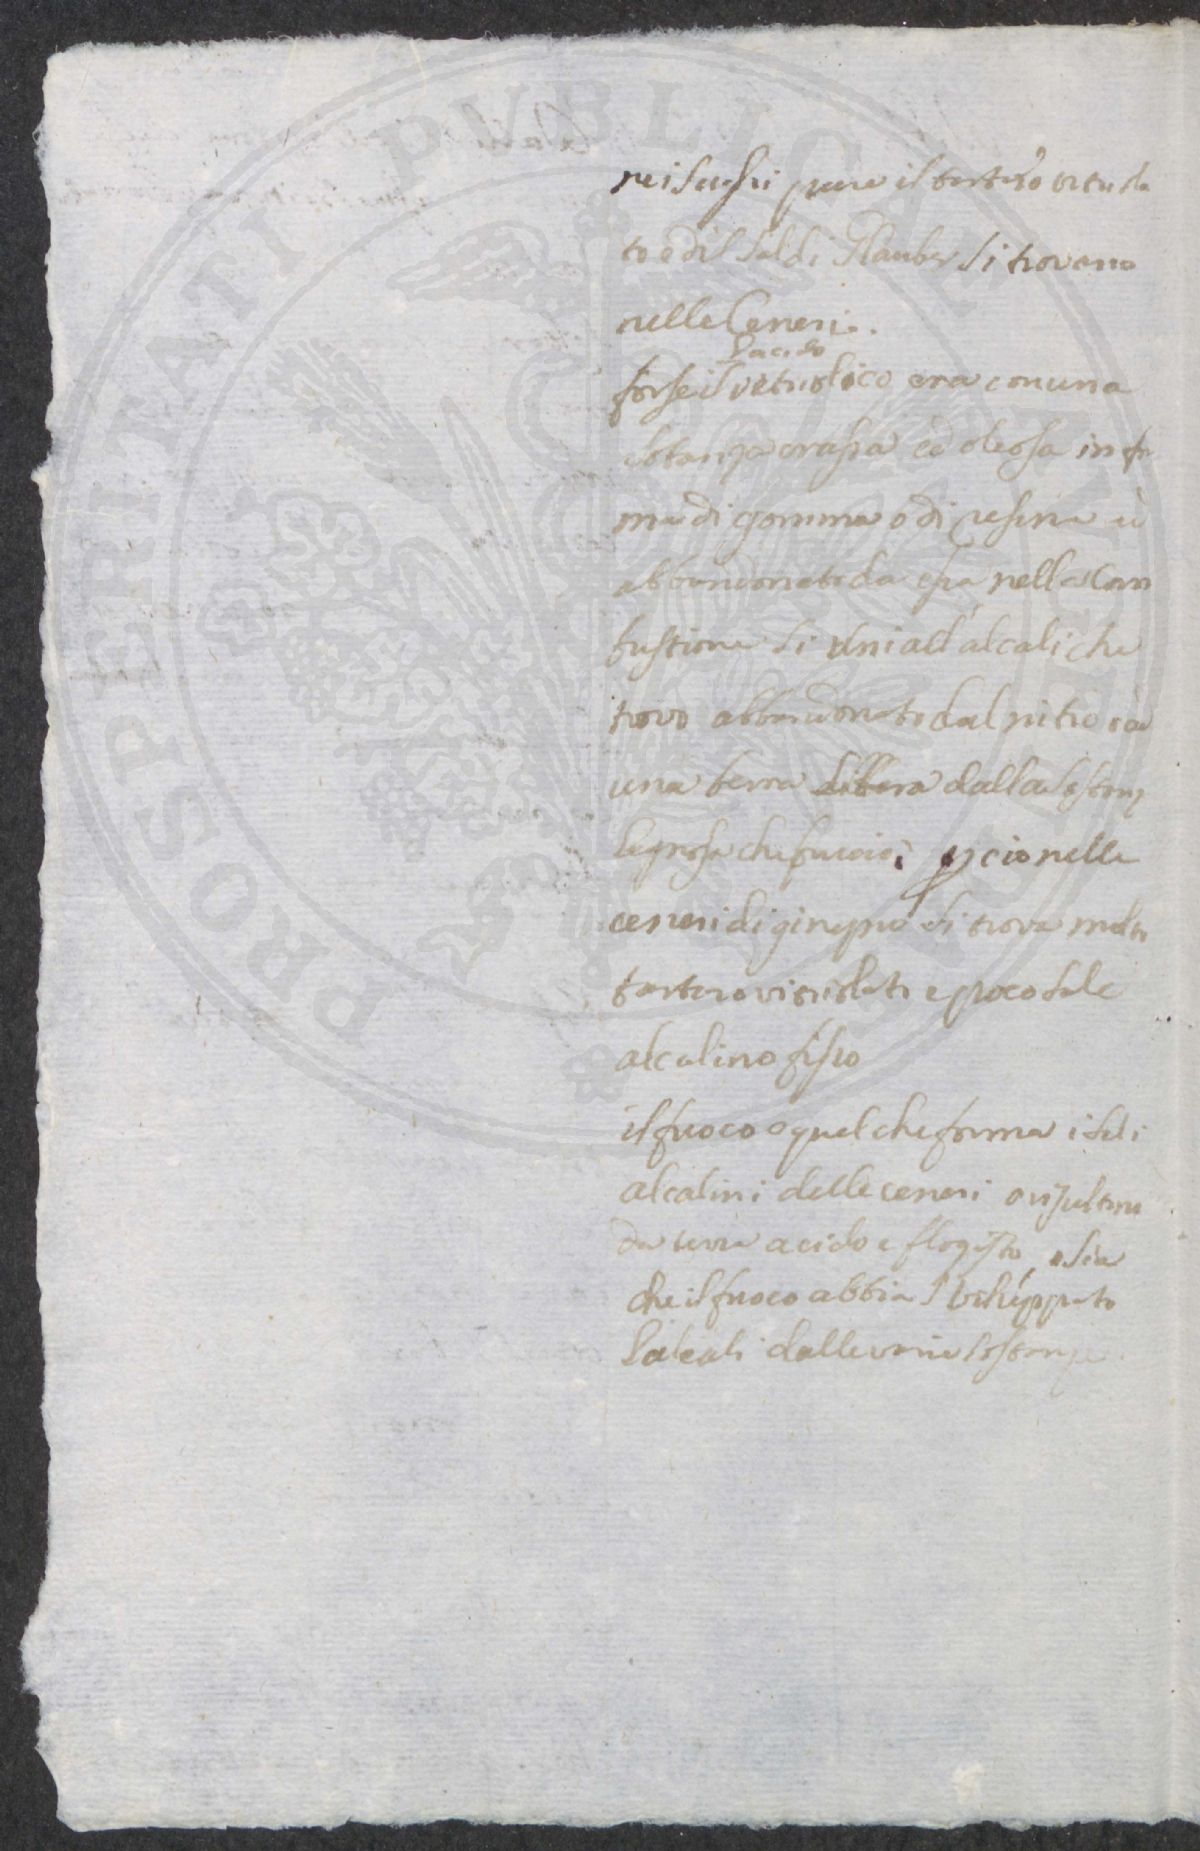 nei sughi pure il tartaro vitriola
to ed il Sal di Glauber si trovano
nelle Ceneri.
l'acido
forse il vitriolico era con una
sostanza crassa ed oleosa in for
ma di gomma o di resina e
abbandonato da essa nella Com
bustione si unì all'alcali che
trovò abbandonato dal nitro o a
una terra libera dalla sostanz
legnosa che bruciò; perciò nelle
ceneri di ginepro si trova molto
tartaro vitriolato e poco sale
alcalino fisso
il fuoco è quel che forma i sali
alcalini delle ceneri o risultino
da terra acido e flogisto, o sia
che il fuoco abbia sviluppato
l'alcali dalle varie sostanze
PROSPERITATI PUBLICAE AUGENDAE